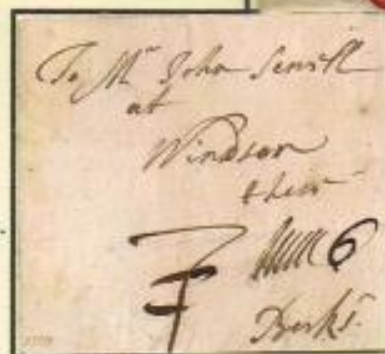 To Mr John Sewell
at
Windsor
6
Berks.